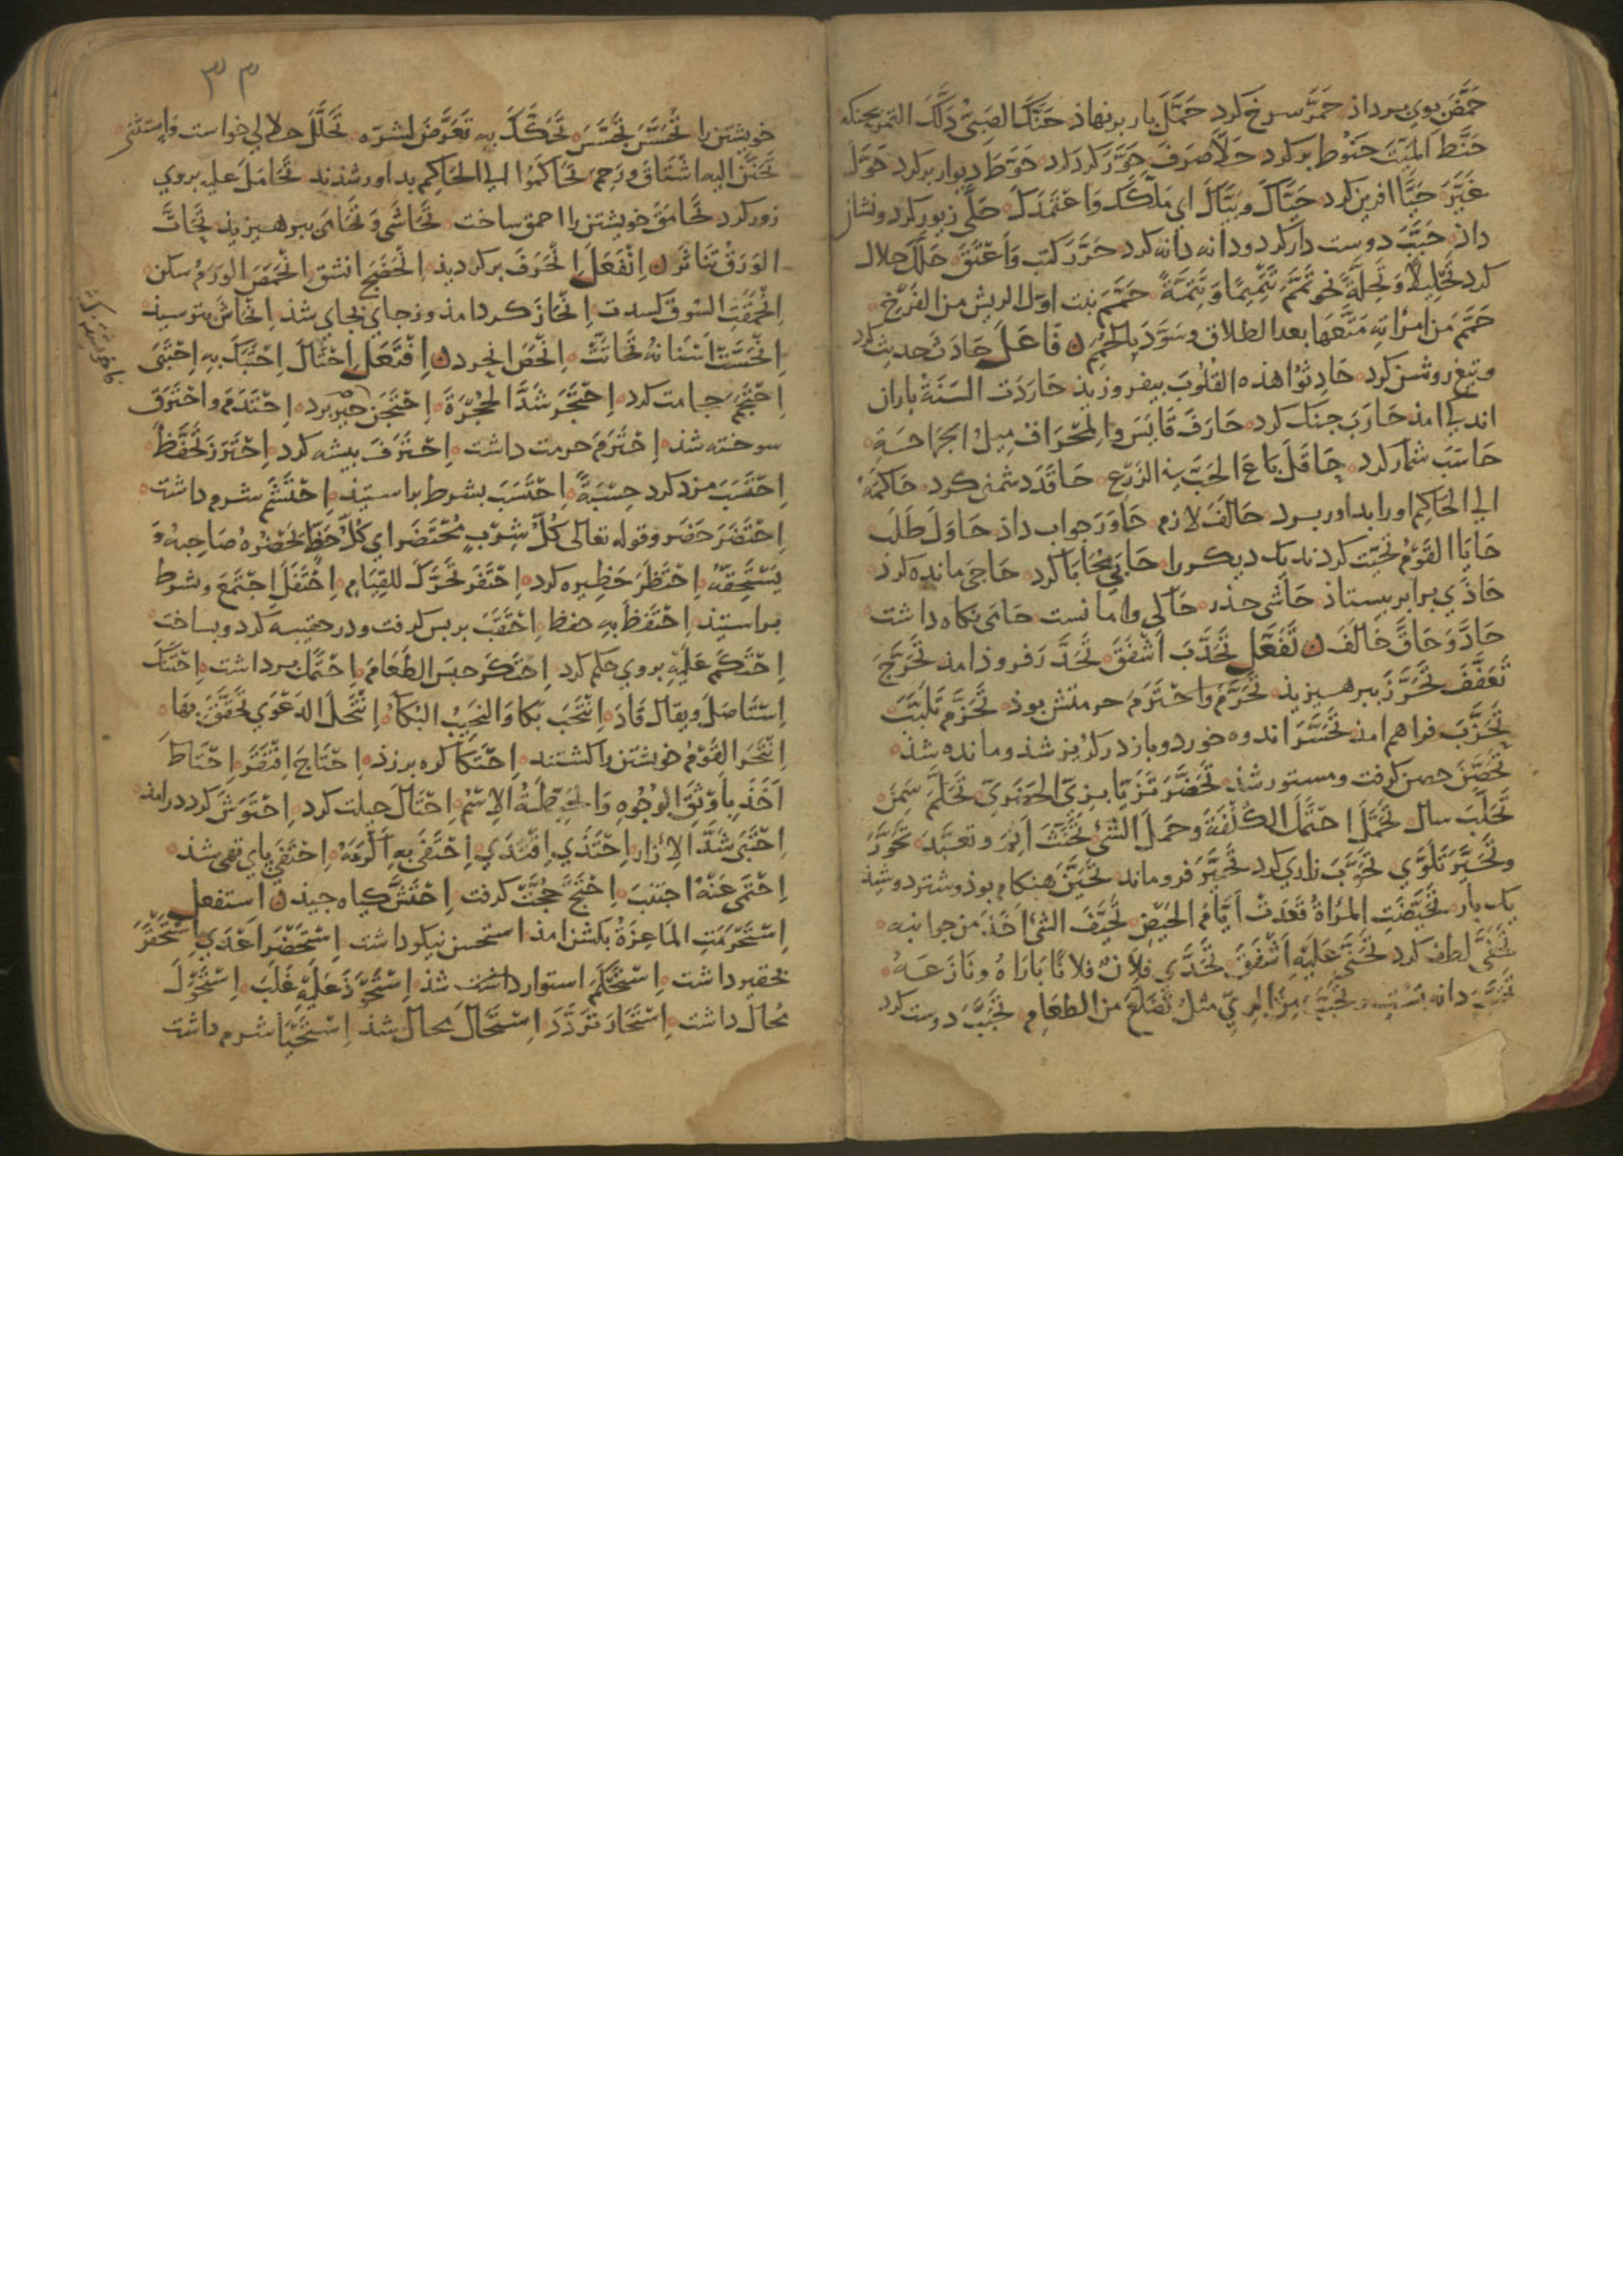 حَمَّضَ بوي برداذ حَمَّرَ سرخ كرد حَمَّلَ بار برنهاذ حَنَّكَ الصَبِيَّ دَلَّكَ التمر بحنكه
حَنَّطَ المَيِّتَ حَنُوط بركرد حَلَّأَ صَرَفَ حَوَّرَ كرد كرد حَوَّطَ ديوار بركرد حَوَّلَ
غَيَّرَ حَيَّا افرين كرد حَيَّاكَ وبَيَّاكَ اي مَلَّكَكَ وَاعْتَمَدَكَ حَلَّي زيور كرد ونشان
داذ حَبَّبَ دوست دار كرد ودانه دانه كرد حَرَّرَ كتب وَاَعْتَقَ حَلَّلَ حلال
كرد تَحْلِيلًا وَتَحِلَّةً نحو تَمَّمَ تَتْمِيمًا وَتَتِمَّةً حَمَّمَ نبت اوّل الريش من الفَرْخِ
حَمَّمَ مَن امرَاتِهِ مَتَّعَهَا بعد الطلاق وسَوَّدَ بِالحُمَمِ ن فَاعَلَ حَادَثَ حديث كرد
وتيغ روشن كرد حَادِثُوا هذه القلُوبَ بيفروزيذ حَارَدَت السَنَةُ باران
اندكي امذ حَارَبَ جنك كرد حَارَفَ قَايَسَ والمحْرَافُ مِيلُ الجَرَاحَةِ
حَاسَبَ شمار كرد حَاقَلَ بَاعَ الحَبَّ في الزَرْعِ حَاقَدَ دشمني كرد حَاكَمَهُ
الي الحَاكِم اورا بداور برد حَالَفَ لازم حَاوَرَ جواب داذ حَاوَلَ طَلَبَ
حَايَا القَوْمُ تحيّت كردند يك ديكر را حَابَي مُحَابَا كرد حَاجَي مانده كرد
حَاذَي برابر بيستاذ حَاشَي حذر حَاكَي واما نست حَامَي نكاه داشت
حَادَّ وَحَاقَّ خَالَفَ ن تَفَعَّل تَحَدَّبَ اَشْفَقَ تَحَدَّرَ فروذ امذ تَحَرَّجَ
تَعَفَّفَ تَحَرَّزَ ببرهيزيذ تَحَرَّمَ وَاحْتَرَمَ حرمتش بوذ تَحَزَّمَ تَلَبَّبَ
تَحَزَّبَ فراهم امذ تَحَسَّرَ اندوه خورد وبازدركريز شذ ومانده شذ
تَحَصَّنَ حصن كرفت ومستور شذ تَحَضَّرَ تَزَيَّا بزيّ الحَضَرِيّ تَحَلَّمَ سَمِنَ
تَحَلَّبَ سال تَحَمَّلَ احْتَمَلَ الكُلْفَةَ وحَمَلَ الشَئَ تَحَنَّثَ اَثِمَ وتعبَّدَ تَحَوَّزَ
وتَحَيَّزَ تَلَوَّي تَحَوَّبَ زاري كرد تَحَيَّرَ فرو ماند تَحَيَّنَ هنكام بوذ وشتر دوشيذ
يك بار تَحَيَّضَتِ المَرْاَةُ قَعَدَتْ اَيَّامَ الحَيْضِ تَحَيَّفَ الشئ اَخَذَ من جوانبه
تَحَفَّي لطف كرد تَحَنَّي عَلَيْهِ اَشْفَقَ تَحَدَّي فُلانٌ فلانًا بَارَاهُ ونَازَعَهُ
تَحَبَّبَ دانه بَسْتِ وتَحَبَّبَ مِنَ الرِيّ مثلُ تَضَلَّعَ من الطعَامِ تَحَبَّبَ دوست كرد
٣٣
خويشتن را تَحَسَّسَ تَجَسَّسَ تَحَكَّكَ بِهِ تَعَرَّضَ لشرّه تَحَلَّلَ حلالي خواست وَاِستَثْني
تَحَنَّنَ اليه اشْتَاقَ وَرَحِمَ تَحَاكَمُوا الي الحَاكِم بداور شذند تَحَامَلَ عليه بروي
زور كرد تَحَامَقَ خويشتن را احمق ساخت تَحَاشَي وَتَحَامَي ببرهيزيذ تَحَاتَّ
الوَرَقُ تَنَاثَرَ ن اِنْفَعَلَ اِنْحَرَفَ بركرديذ اِنْحَضَجَ انشق انْحَمَصَ الورَمُ سكن
اِنْحَمَقَتِ السُوقُ كسدت اِنْحَازَ كرد امذ وزجاي بجاي شذ اِنْحَاشَ بترسيذ
اِنْحَتَّتْ اَسْنَانُهُ تَحَاتَّتْ اِنْحَصَّ انجرد ن اِفْتَعَلَ احْتَالَ اِحْتَبَكَ بِهِ اِحْتَبَي
اِحْتَجَمَ حجامت كرد اِحْتَجَزَ شَدَّ الحُجْزَةَ اِحْتَجَنَ چيز برد اِحْتَدَمَ وَاحْتَرَقَ
سوخته شذ اِحْتَرَمَ حرمت داشت اِحْتَرَفَ بيشه كرد اِحْتَرَزَ تَحَفَّظَ
اِحْتَسَبَ مزد كرد حِسْبَةً اِحْتَسَبَ بشرط براستيذ اِحْتَشَمَ شرم داشت
اِحْتَضَرَ حَضَرَ وقوله تعالى كُلُّ شِرْبٍ مُحْتَضَر اي كُلُّ حَظٍّ يَحْضُرُهُ صَاحِبهُ وَ
يَسْتَحِقّهُ اِحْتَظَرَ حَظِيره كرد اِحْتَفَزَ تَحَرَّكَ للقِيَامِ اِحْتَفَلَ اِجْتَمَعَ وشرط
براستيذ اِحْتَفَظَ بِهِ حفظ اِحْتَقَبَ بربس كرفت ودر حقيبه كرد وبساخت
اِحْتَكَمَ عَلَيْهِ بروي حكم كرد اِحْتَكَرَ حبَس الطَعَامَ اِحْتَمَلَ برداشت اِحْتَنَكَ
اِسْتَاصَلَ ويقال قَادَ اِنْتَحَبَ بَكَا وَالنحِيبُ البُكَاُ اِنْتَحَلَ الدَعْوَي تَحَقَّقَ بِهَا
اِنْتَحَرَ القَوْمُ خويشتن را كشتند اِحْتَكَا كره برزذ اِحْتَاجَ اِفْتَقَرَ اِحْتَاطَ
اَخَذَ بِاَوْثَقِ الوُجُوهِ وَالحِيطَةُ الاِسْمُ اِحْتَالَ حيلت كرد اِحْتَوَشَ كرد درامذ
اِحْتَبَي شَدَّ الاِزَار اِحْتَذَي اِقْتَدَي اِحْتَفَي بِهِ اَكْرَمَهُ اِحْتَفَي باي تهي شذ
اِحْتَمَي عَنْهُ اجتنبَ اِحْتَجَّ حُجَّتْ كرفت اِحْتَشَّ كياه جيذ ن استفعل
اِسْتَحْرَمَتِ المَاعِزَةُ بكشن امذ استحسن نيكو داشت اِسْتَحْضَرَ اَعْدَي اِسْتَحْقَرَ
حقير داشت اِسْتَحْكَمَ استوار شذ اِسْتَحْوَذَ عَلَيْهِ غَلَبَ اِسْتَحْوَلَ
مُحَال داشت اِسْتَحَارَ تَرَدَّدَ اِسْتَحَالَ محال شذ اِسْتَحْيَا شرم داشت